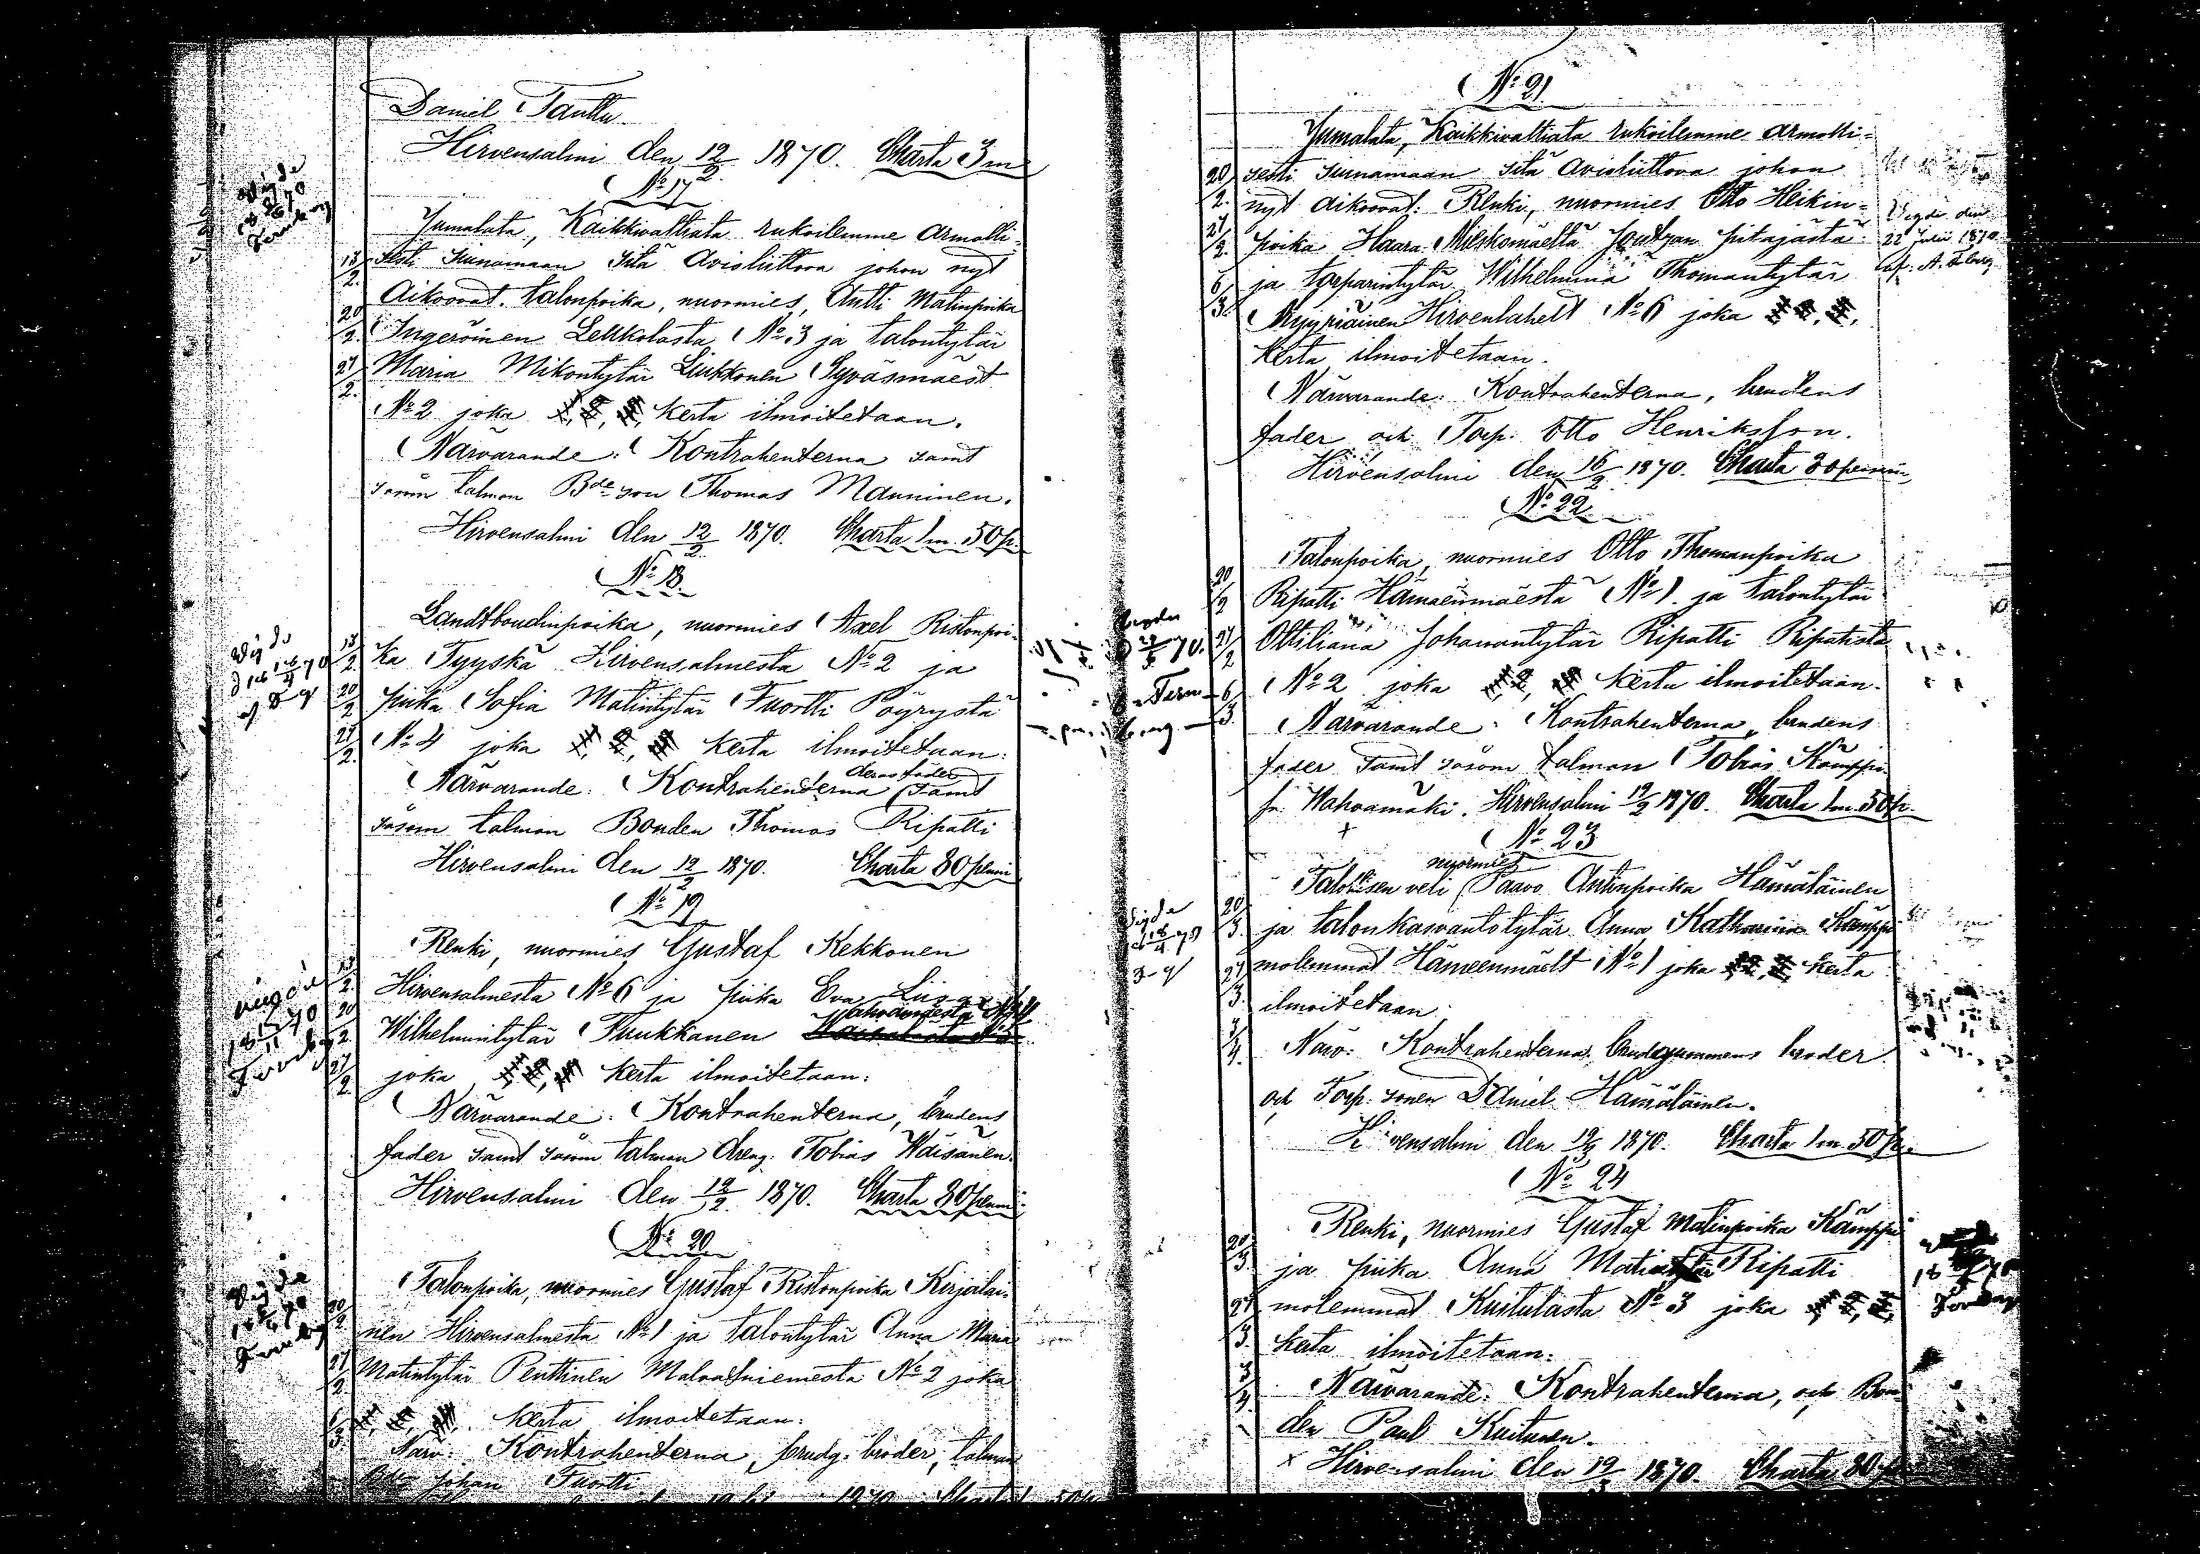 Daniel Tanttu.
Hirvensalmi den 12/2 1870. Charta 3 m
No 17
Jumalata, Kaikkivaltiata rukoilemme Armolli-
sesti siunamaan sitä Avioliittoa johon nyt
Aikoovat. talonpoika, nuormies, Antti Matinpoika
Ingeröinen Lelkkolasta No 3 ja talontytär
Maria Mikontytär Liukkonen Syväsmäest
No 2 joka kerta ilmoitetaan.
Närvarande: Kontrahenterna samt
såsom talman Bde son Thomas Manninen.
Hirvensalmi den 12/2 1870. Charta 1 m. 50 p.
No 18.
Landtboudinpoika, nuormies Axel Ristonpoi-
ka Tyyskä Hirvensalmesta No 2 ja
piika Sofia Matintytär Tuortti Pöyrystä
No 4 joka kerta ilmoitetaan:
Närvarande: Kontrahenterna deras fäder samt
såsom talman Bonden Thomas Ripatti
Hirvensalmi den 12/2 1870. Charta 80 penni
No 19
Renki, nuormies Gustaf Kekkonen
Hirvensalmesta No 6 ja piika Eva Liisa
Wilhelmintytär Tuukkanen
joka kerta ilmoitetaan:
Närvarande: Kontrahenterna, brudens
fader samt såsom talman dreng. Tobias Wäisänen.
Hirvensalmi den 12/2 1870. Charta 80 penni
No 20
Talonpoika, nuormies Gustaf Ristonpoika Kirjalai-
nen Hirvensalmesta No 1 ja talontytär Anna Maria
Matintytär Penttinen Malvatniemesta No 2 joka
kerta ilmoitetaan:
Närv: Kontrahenterna, brudg. broder, talman
Johan Tuortti
No 21
Jumalata, Kaikkivaltiata rukoilemme armolli-
sesti siunamaan sitä Avioliittoa johon
nyt aikoovat: Renki, nuormies Otto Heikin-
poika Haara Mieskomäeltä Joutzan pitäjästä
ja torparintytär Wilhelmina Thomantytär
Myyriäinen Hirvenlahelt No 6 joka
kerta ilmoitetaan.
Wigde den
22 Julii 1870
af. A.
Närvarande: Kontrahenterna, brudens
fader och Torp. Otto Henriksson.
Hirvensalmi den 16/2 1870. Charta 80 pennin
No 22.
Talonpoika, nuormies Otto Thomanpoika
Ripatti Hämaenmäestä No 1. ja talontytär
Ottiliana Johanantytär Ripatti Ripatista
No 2 joka kerta ilmoitetaan.
Närvarande: Kontrahenterna, brudens
fader samt såsom talman Tobias Kämppi
fr. Wahvamäki. Hirvensalmi 19/2 1870. Charta 1 m. 50 p.
No 23
Talollisen veli nuormies Paavo Antinpoika Hämäläinen
ja talonkasvantotytär Anna Katharina Kämppi
molemmat Hämeenmäelt No 1 joka kerta
ilmoitetaan:
Närv: Kontrahenterna, brudgummens broder
och Torp. sonen Daniel Hämäläinen.
Hirvensalmi den 19/3 1870. Charta 1 m. 50 p.
No 24
Renki, nuormies Gustaf Matinpoika Kämppi
ja piika Anna Matintytär Ripatti
molemmat Kuitulasta No 3 joka
kerta ilmoitetaan:
Närvarande: Kontrahenterna, och Bon-
den Paul Kuitunen.
Hirvensalmi den 19/3 1870. Charta 80 p